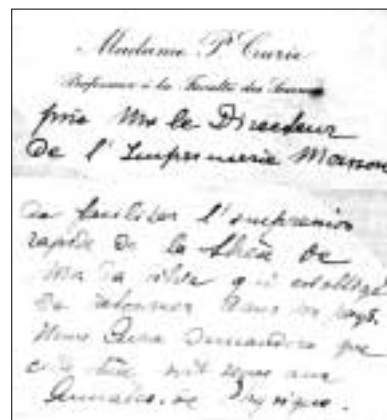 Madame P. Curie
Professeur à la Faculté des Sciences
prie Mr le Directeur
de l'Imprimerie
de faciliter l'impression
rapide de la thèse de
qui est obligé
de retourner dans son pays.
Mme Curie demandera que
cette thèse soit
Annales de Physique.